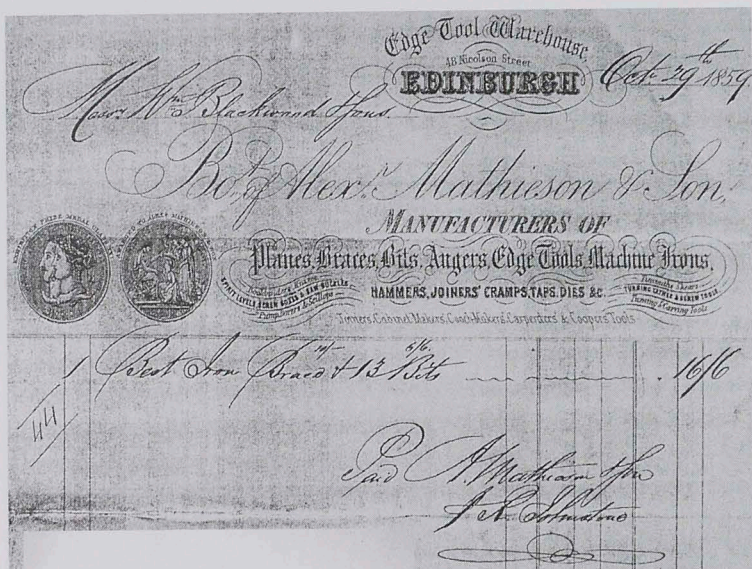 Edge Tool Warehouse,
48 Nicolson Street
EDINBURGH
Octr 29th 1859
Messrs Wm Blackwood & Sons
Bot of Alexr Mathieson & Son,
MANUFACTURERS OF
Planes, Braces, Bits, Augers, Edge Tools, Machine Irons,
SPIRIT LEVELS, SCREW BOXES & SAW HANDLES
HAMMERS, JOINERS' CRAMPS, TAPS, DIES &C.
TURNING LATHES & SCREW TOOLS
Turning & Carving Tools
Joiners, Cabinet Makers, Coach Makers, Carpenters & Coopers Tools
10/- 6/6
1 Best Iron Brace & 13 Bits 16/6
44
Paid A Mathieson & Son
J R Johnstone